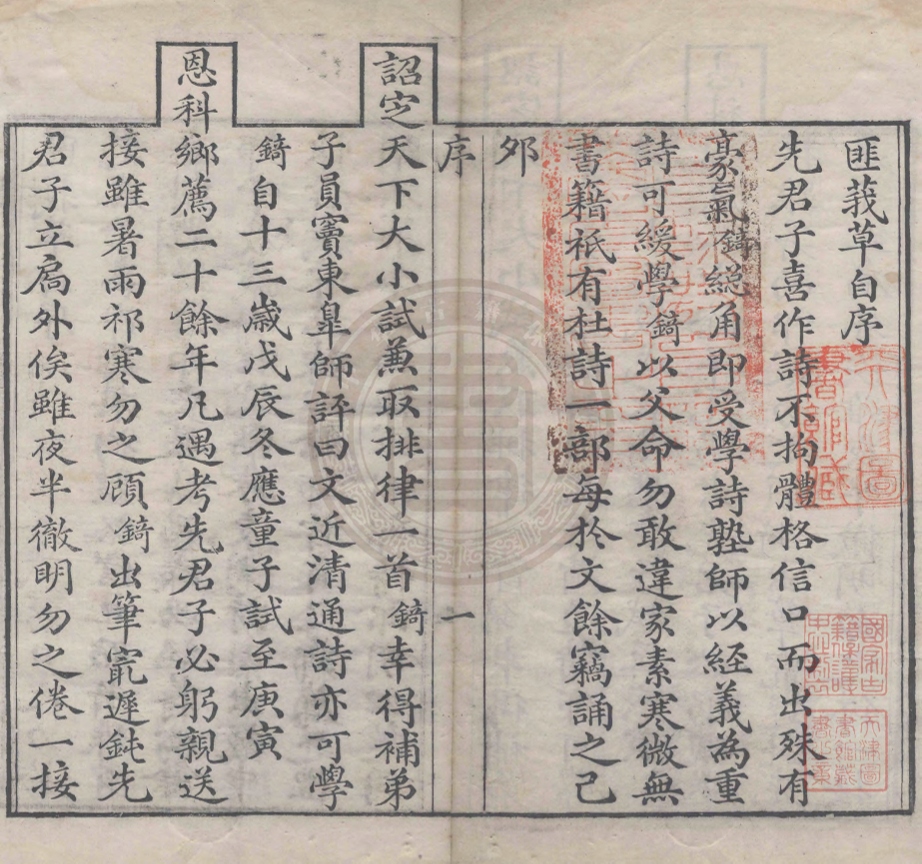 匪莪草自序
先君子喜作詩不拘體格信口而出殊有
豪氣錡緫角即受學詩塾師以經義為重
詩可緩學錡以父命勿敢違家素寒微無
書籍祇有杜詩一部每於文餘竊誦之己
夘
序
一
詔定天下大小試兼取排律一首錡幸得補弟
子員竇東臯師評曰文近清通詩亦可學
錡自十三歲戊辰冬應童子試至庚寅
恩科鄉薦二十餘年凡遇考先君子必躬親送
接雖暑雨祁寒勿之顧錡出筆窻遲鈍先
君子立扄外俟雖夜半徹明勿之倦一接